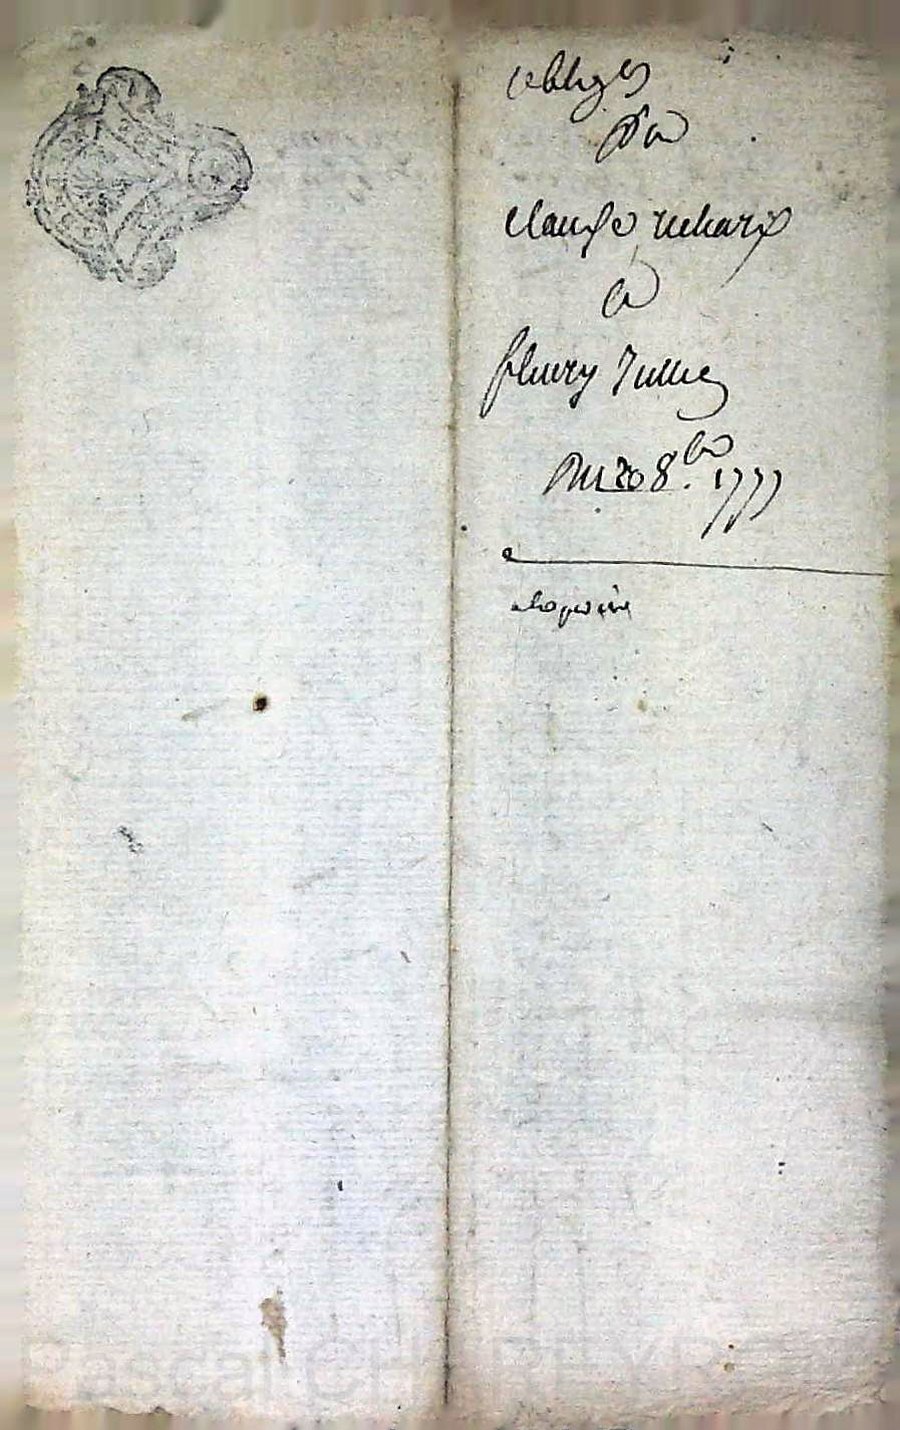 obligõn
De
claude richard
a
fleury Jullien
Du 20 8bre 1777
Pascal CHAREYRE